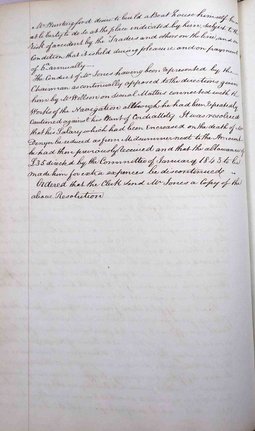 Mr Bursteriford desire to build a Boat House himself he
at liberty to do so at the place indicated by him subject to the
risk of accident by the Traders and others on the line, and on
Condition that it is held during pleasure and on payment
of £ annually
The Conduct of Mr Jones having been represented by the
Chairman as continually opposed to the directions given
him by Mr Willson on Several Matters connected with the
Works of the Navigation although he had been repeatedly
Cautioned against his Want of Cordiality It was resolved
that his Salary which had been Encreased on the death of Mr
be reduced as from Midsummer next to the Amount
he had then previously received and that the allowance of
£35 directed by the Committee of January 1843 to be
made him for extra expences be discontinued
Ordered that the Clerk send Mr Jones a Copy of the
above Resolution